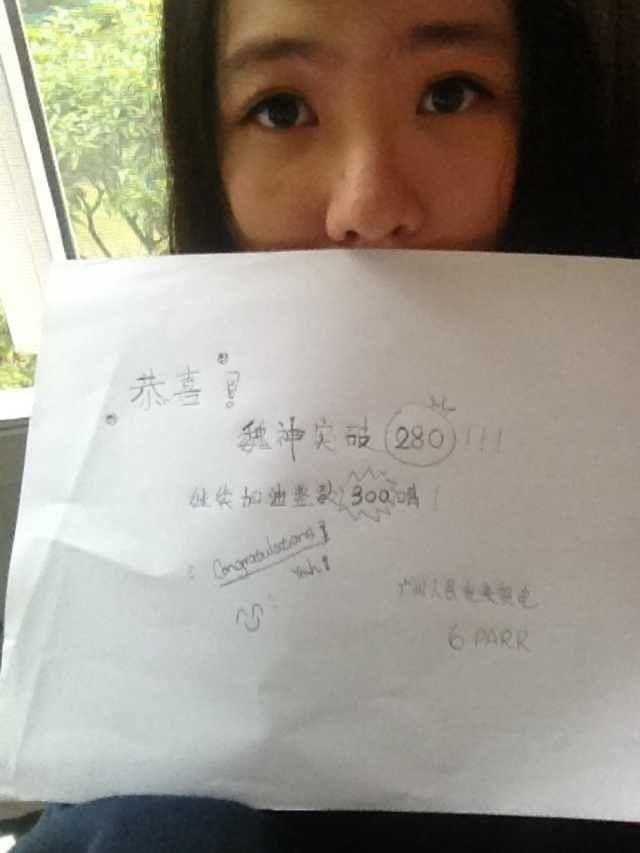 恭喜!
魏神突破280!!!
继续加油拿款300唷!
Congratulations!
Yeah!
广州人民
6 PARK